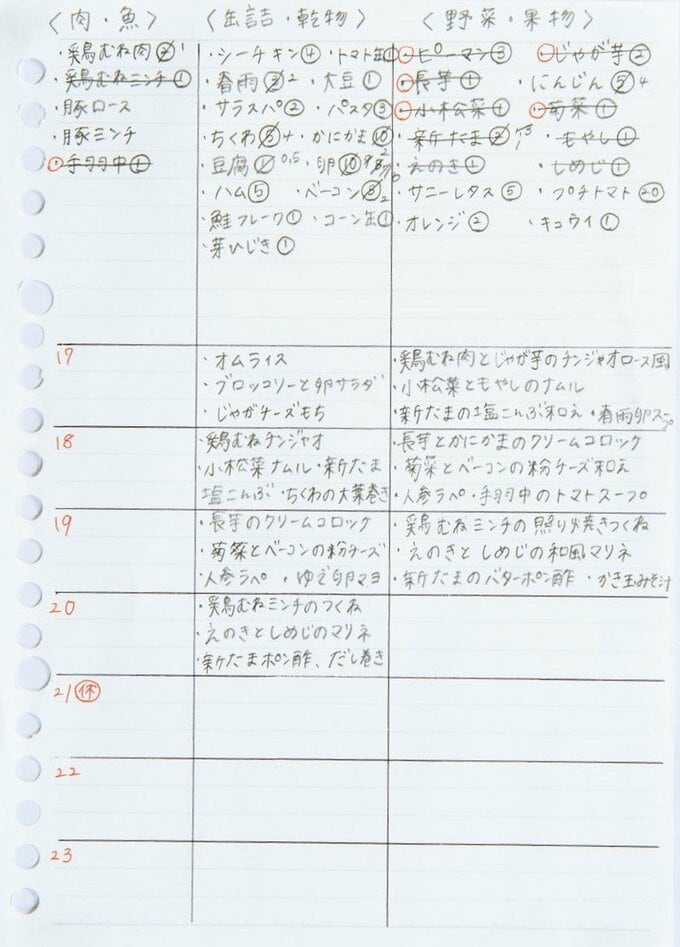 〈肉・魚〉 〈缶詰・乾物〉 〈野菜・果物〉
・鶏むね肉② 1 ・シーチキン④ ・トマト缶① ・ピーマン③ ・じゃが芋②
・鶏むねミンチ① ・春雨③ 2 ・大豆① ・長芋① ・にんじん⑤ 4
・豚ロース ・サラスパ② ・パスタ③ ・小松菜① ・菊菜①
・豚ミンチ ・ちくわ⑤ 4 ・かにかま⑩ ・新たま ・もやし①
・手羽中① ・豆腐① 0.5 ・卵⑩ ・えのき① ・しめじ①
・ハム⑤ ・ベーコン 2 ・サニーレタス⑤ ・プチトマト⑳
・鮭フレーク① ・コーン缶① ・オレンジ② ・キュウイ①
・芽ひじき①
17 ・オムライス ・鶏むね肉とじゃが芋のチンジャオロース風
・ブロッコリーと卵サラダ ・小松菜ともやしのナムル
・じゃがチーズもち ・新たまの塩こんぶ和え ・春雨卵スープ
18 ・鶏むねチンジャオ ・長芋とかにかまのクリームコロッケ
・小松菜ナムル ・新たま ・菊菜とベーコンの粉チーズ和え
塩こんぶ ・ちくわの大葉巻き ・人参ラペ ・手羽中のトマトスープ
19 ・長芋のクリームコロッケ ・鶏むねミンチの照り焼きつくね
・菊菜とベーコンの粉チーズ ・えのきとしめじの和風マリネ
・人参ラペ ・ゆで卵マヨ ・新たまのバターポン酢 ・かき玉みそ汁
20 ・鶏むねミンチのつくね
・えのきとしめじのマリネ
・新たまポン酢、だし巻き
21 休
22
23